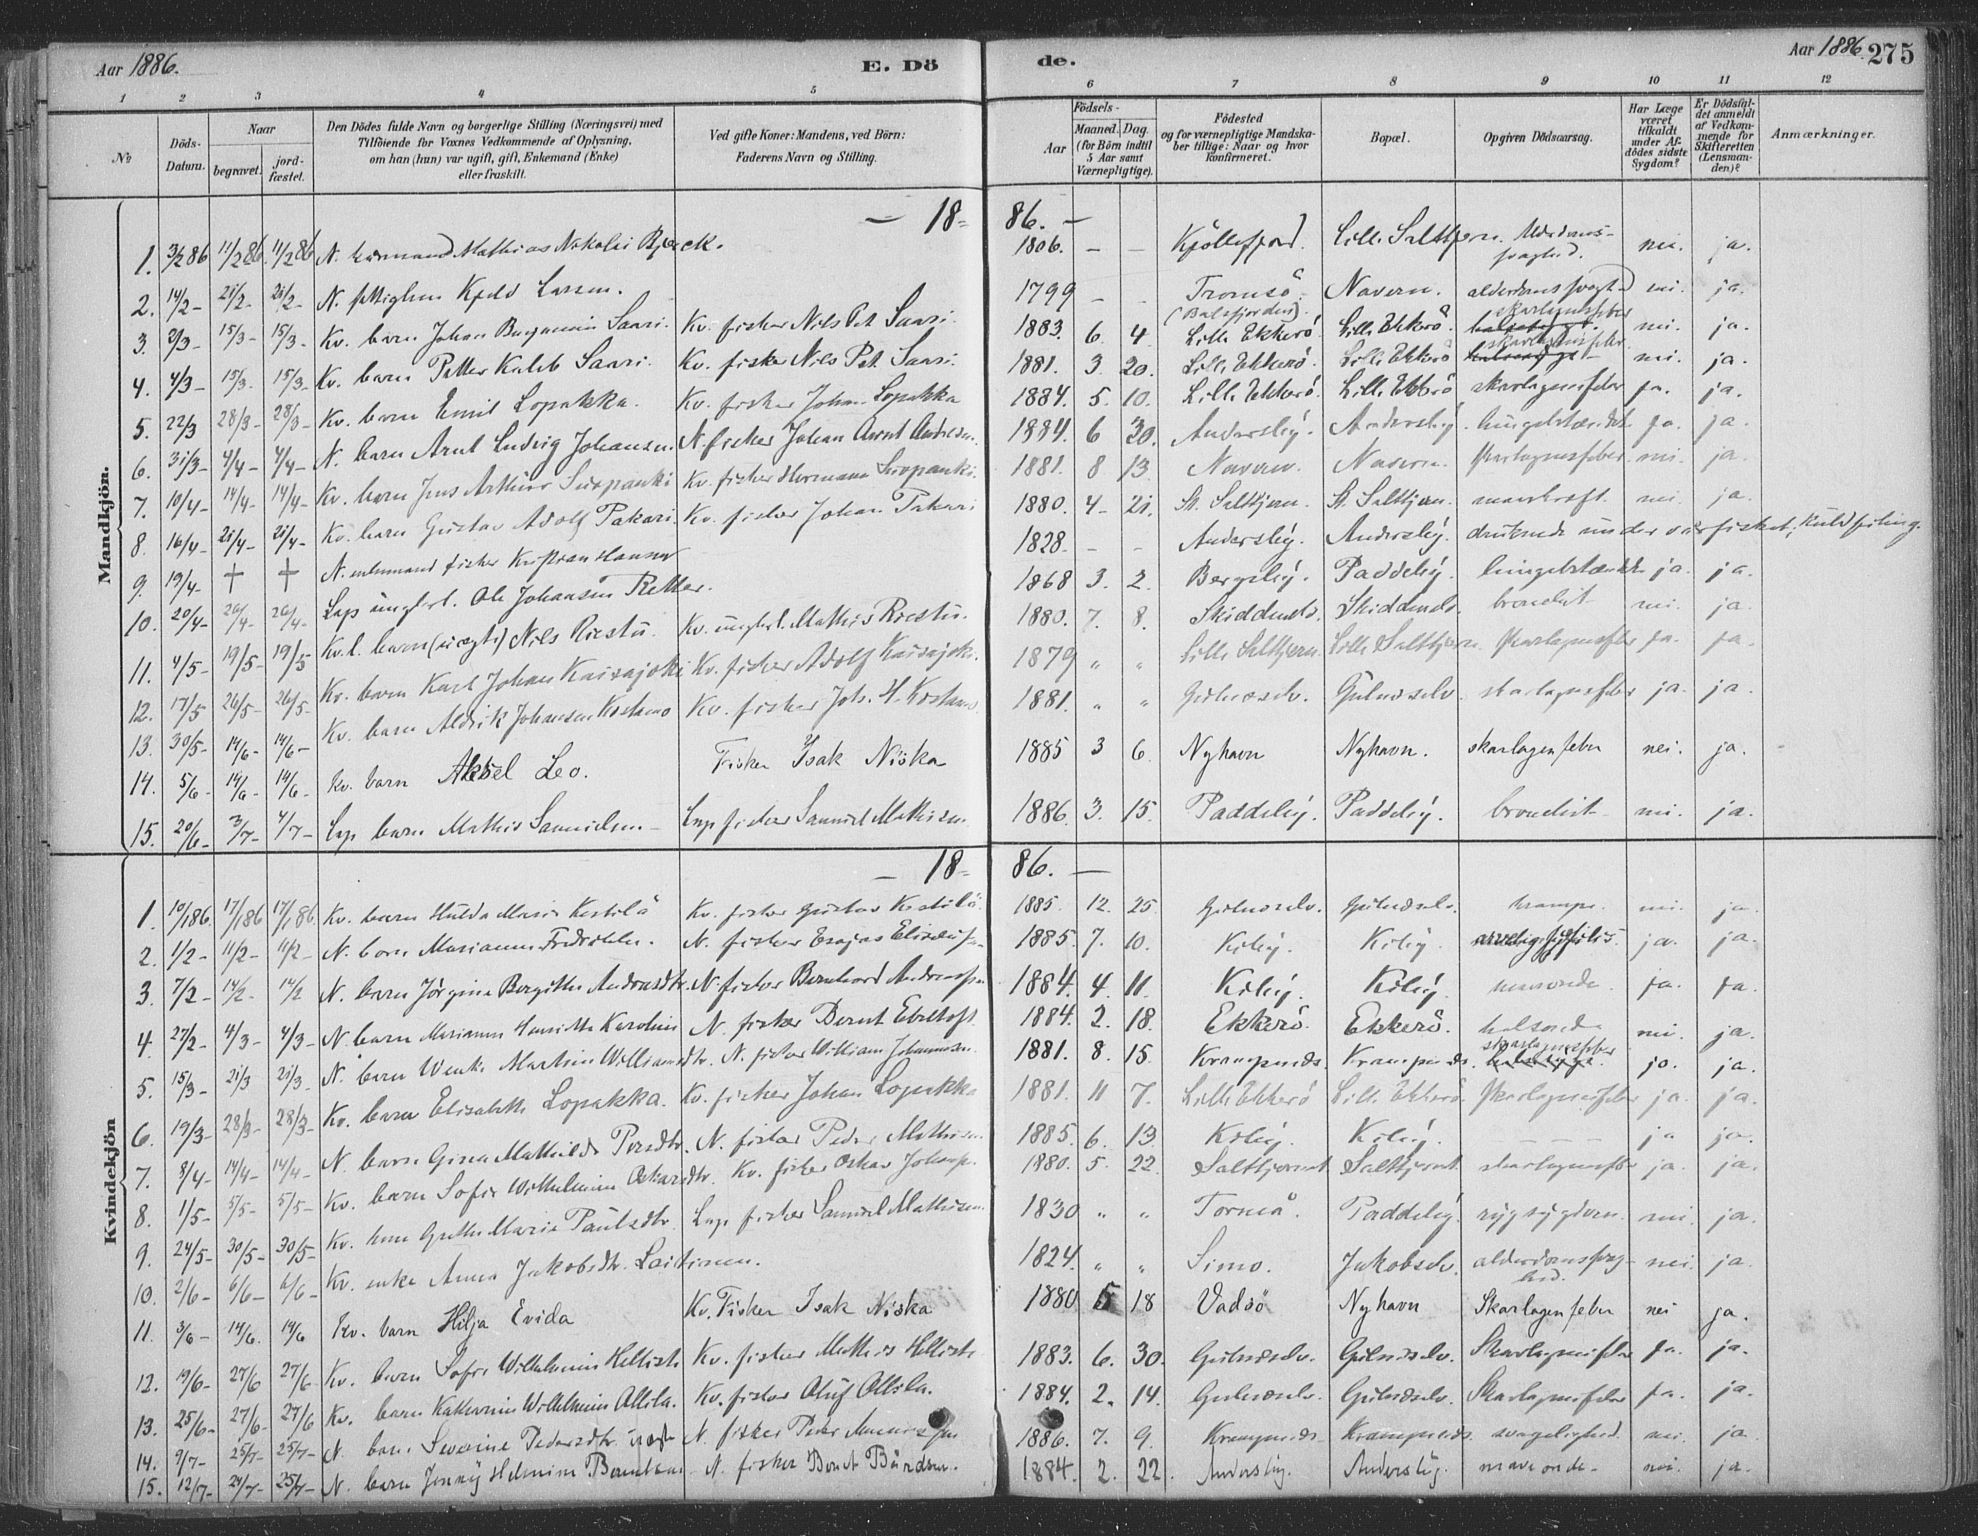 Aar 1886.
E. Dö
de.
Aar 1886. 275
1 2 3 4 5 6 7 8 9 10 11 12
No
Döds-Datum.
Naar
begravet.
jord-fæstet.
Den Dödes fulde Navn og borgerlige Stilling (Næringsvei) med
Tilföiende for Voxnes Vedkommende af Oplysning,
om han (hun) var ugift, gift, Enkemand (Enke)
eller fraskilt.
Ved gifte Koner: Mandens, ved Börn:
Faderens Navn og Stilling.
Födsels-
Aar
Maaned. Dag.
(for Börn indtil
5 Aar samt
Værnepligtige).
Födested
og for værnepligtige Mandska-
ber tillige: Naar og hvor
konfirmeret.
Bopæl.
Opgiven Dödsaarsag.
Har Læge
været
tilkaldt
under Af-
dödes sidste
Sygdom?
Er Dödsfal-
det anmeldt
af Vedkom-
mende for
Skifteretten
(Lensman-
den)?
Anmærkninger.
Mandkjön.
— 18= 86. —
1. 3/2 86 11/2 86. 11/2 86 N. Mathias Nikolai Bjerck. 1806. — — Kjöllefjord. Lille Salttjern. Alderdoms-svaghed. nei. ja.
2. 14/2- 21/2- 21/2- N. Kjeld Larsen. 1799 - - Tromsö. (Balsfjorden). Navern. alderdomssvaghed nei. ja.
3. 2/3- 15/3- 15/3- Kv. barn Johan Benjamin Saari. Kv. fisker Nils Pet. Saari. 1883. 6. 4. Lille Ekkerö. Lille Ekkerö. skarlagensfeber nei. ja.
4. 4/3- 15/3. 15/3- Kv. barn Petter Kaleb Saari. Kv. fisker Nils Pet. Saari. 1881. 3 20. Lille Ekkerö. Lille Ekkerö skarlagensfeber nei. ja.
5. 22/3 28/3- 28/3- Kv. barn Emil Lopakka. Kv. fisker Johan Lopakka 1884. 5. 10. Lille Ekkerö. Lille Ekkerö skarlagensfeber ja. ja.
6. 31/3- 4/4- 4/4- N. barn Arnt Ludvig Johansen N. fisker Johan Arnt Andersen. 1884. 6 20. Andersby. Andersby. lungebetændelse ja. ja.
7. 10/4- 14/4- 14/4- Kv. barn Jens Arthur Kv. fisker Herman 1881. 8 13. Navern. Navern. skarlagensfeber. nei. ja.
8. 16/4- 21/4- 21/4- Kv. barn Gustav Adolf Pakari. Kv. fisker Johan Pakari 1880. 4- 21. St. Saltjern. St. Saltjern. nei. ja.
9. 19/4- + + N. enkemand fisker Hansen 1828 - - Andersby. Andersby. druknede under vårfisket,
10. 20/4- 20/4- 20/4- Lap ungkarl. Ole Johansen Retter. 1868 3. 2. Bergeby. Paddeby. lungebetændelse ja. ja.
11. 4/5- 19/5- 19/5 Kv. l. barn (uægte) Nils Riestu. Kv. ungkarl. Mathis Riestu. 1880. 7. 8. Skiddenes. Skiddenes. bronchit nei. ja.
12. 17/5 26/5- 26/5- Kv. barn Karl Johan Kaisajoki Kv. fisker Adolf Kaisajoki. 1879 „ „ Lille Saltjern. Lille Saltjern. skarlagensfeber ja. ja.
13. 30/5- 14/6- 14/6- Kv. barn Aldrik Johansen Kostamo Kv. fisker Joh. H. Kostamo. 1881. „ „ Golnæselv. Golnæselv. skarlagensfeber ja. ja.
14. 5/6- 14/6- 14/6- Kv. barn Aksel Leo. Fisker Isak Niska 1885 3 6. Nyhavn Nyhavn. skarlagenfeber nei. ja.
15. 20/6- 3/7- 4/7- Lap barn Mathis Samuelsen- Lap fisker Samuel Mathisen 1886. 3. 15. Paddeby. Paddeby. bronchit nei. ja.
Kvindekjön
— 18= 86. —
1. 10/1 86 17/1 86 17/1 86. Kv. barn Hulda Maria Kestilä Kv. fisker Gustav Kestilä. 1885. 12. 25. Golnæselv. Golnæselv. krampe. nei. ja.
2. 1/2- 11/2- 11/2- N. barn Marianne N. fisker Esajas 1885. 7. 10. Kiby. Kiby. arvelig syfilis. ja. ja.
3. 7/2- 14/2- 14/2 N. barn Jörgine Bergitte Andreasdtr. N. fisker Bernhard Andreassen 1884. 4. 11. Kiby. Kiby. ja. ja.
4. 27/2- 4/3- 4/3- N. barn Marianne Henriette Karoline N. fisker Bernt Ebeltoft 1884. 2. 18. Ekkerö. Ekkerö. halsonde nei. ja.
5. 15/3- 21/3 21/3. N. barn Wenke Martine Williamsdtr. N. fisker William Johannesen. 1881. 8. 15. Krampenæs. Krampenæs. skarlagensfeber ja. ja.
6. 19/3- 28/3- 28/3- Kv. barn Elisabeth Lopakka. Kv. fisker Johan Lopakka 1881. 11 7. Lille Ekkerö Lille Ekkerö. skarlagensfeber ja. ja.
7. 8/4- 14/4- 14/4- N. barn Gina Mathilde Persdtr. N. fisker Peder Mathisen. 1885. 6. 13. Kiby. Kiby. — — — ja ja.
8. 1/5- 5/5- 5/5- Kv. barn Sofie Wilhelmine Oskarsdtr. Kv. fisker Oskar 1880. 5. 22. skarlagensfeber ja. ja.
9. 24/5- 30/5- 30/5- Kv. kone Grethe Maria Paulsdtr. Lap fisker Samuel Mathisen. 1830 „ „ Torneå. Paddeby. rygsygdom. nei. ja.
10. 2/6- 6/6- 6/6- Kv. enke Anna Jakobsdtr. Laitinen. 1824. „ „ Simo. Jakobselv. alderdomssvag-hed. nei. ja.
11. 3/6- 14/6. 14/6 Kv. barn Hilja Evida Kv. Fisker Isak Niska 1880 5 18 Vadsö Nyhavn Skarlagenfeber nei ja.
12. 19/6- 27/6 27/6 Kv. barn Sofie Wilhelmine Kv. fisker Mathis 1883. 6. 30. Golnæselv. Golnæselv. Skarlagensfeber ja. ja.
13. 25/6- 27/6- 27/6 Kv. barn Katharine Wilhelmine Ollila. Kv. fisker Oluf Ollila. 1884. 2. 14. Golnæselv. Golnæselv. Skarlagensfeber ja. ja.
14. 9/7- 25/7- 25/7- N. barn Severine Pedersdtr. uægte N. fisker Peder 1886. 7. 9. Krampenæs. Krampenæs. svagelighed. nei. ja.
15. 12/7- 24/7- 25/7- N. barn Jenny Helmine Berntsen N. fisker Bernt Bårdsen. 1884. 2. 22. Andersby. Andersby. maveonde- nei. ja.